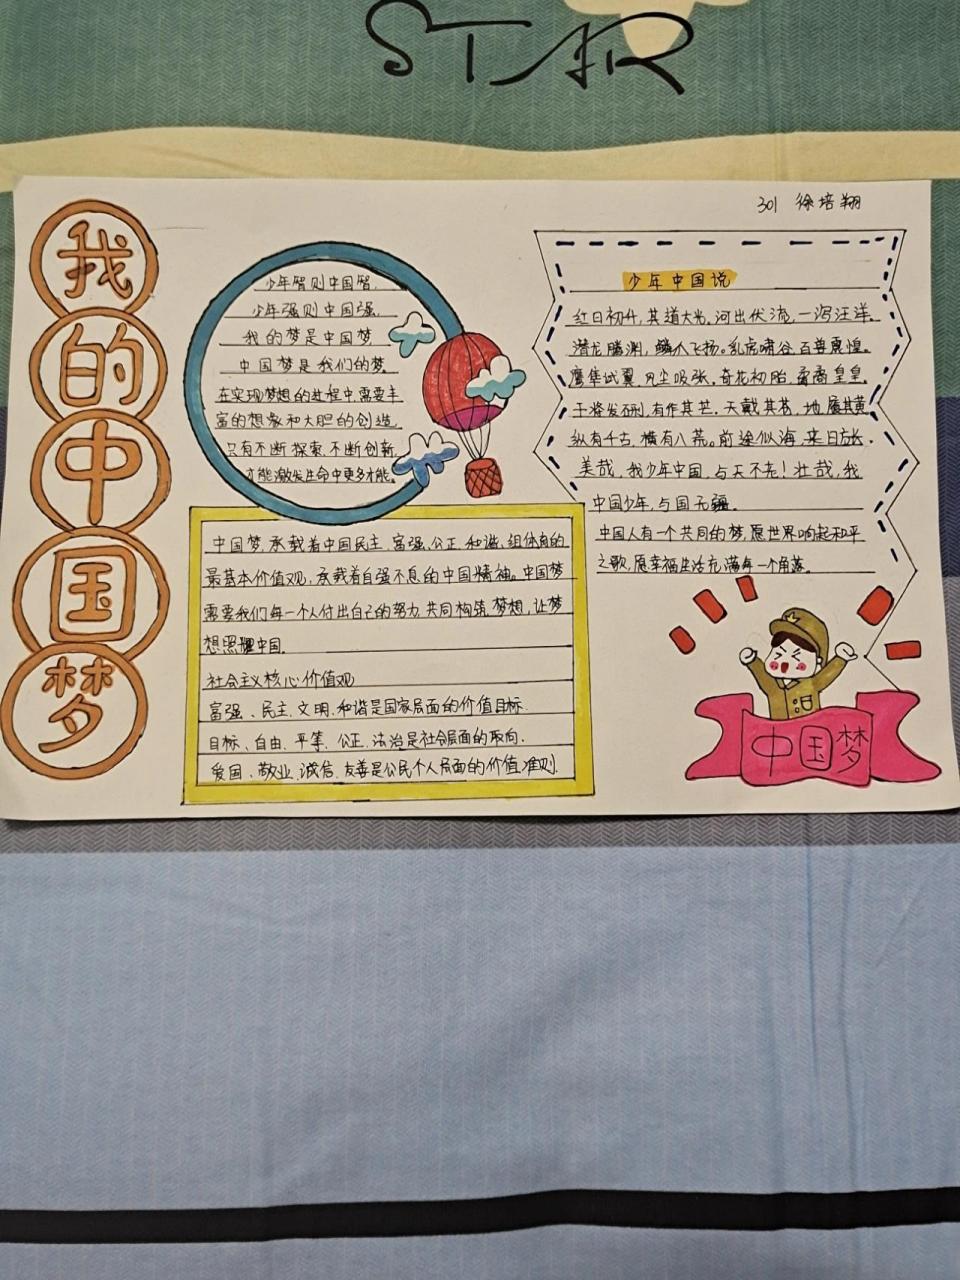 STAR
301 徐培翔
我的中国梦
少年智则中国智,
少年强则中国强,
我的梦是中国梦
中国梦是我们的梦,
在实现梦想的进程中,需要丰
富的想象和大胆的创造,
只有不断探索,不断创新,
才能激发生命中更多才能。
中国梦,承载着中国民主、富强、公正、和谐、组体角的
最基本价值观,承载着自强不息的中国精神。中国梦
需要我们每一个人付出自己的努力,共同构筑梦想,让梦
想照耀中国。
社会主义核心价值观
富强、民主、文明、和谐是国家层面的价值目标.
目标、自由、平等、公正、法治是社会层面的取向.
爱国、敬业、诚信、友善是公民个人层面的价值准则.
少年中国说
红日初升,其道大光,河出伏流,一泻汪洋。
潜龙腾渊,鳞爪飞扬。乳虎啸谷,百兽震惶。
鹰隼试翼,风尘吸张。奇花初胎,矞矞皇皇。
干将发硎,有作其芒。天戴其苍,地履其黄
纵有千古,横有八荒。前途似海,来日方长.
美哉,我少年中国,与天不老!壮哉,我
中国少年,与国无疆。
中国人有一个共同的梦,愿世界响起和平
之歌,愿幸福生活充满每一个角落。
中国梦